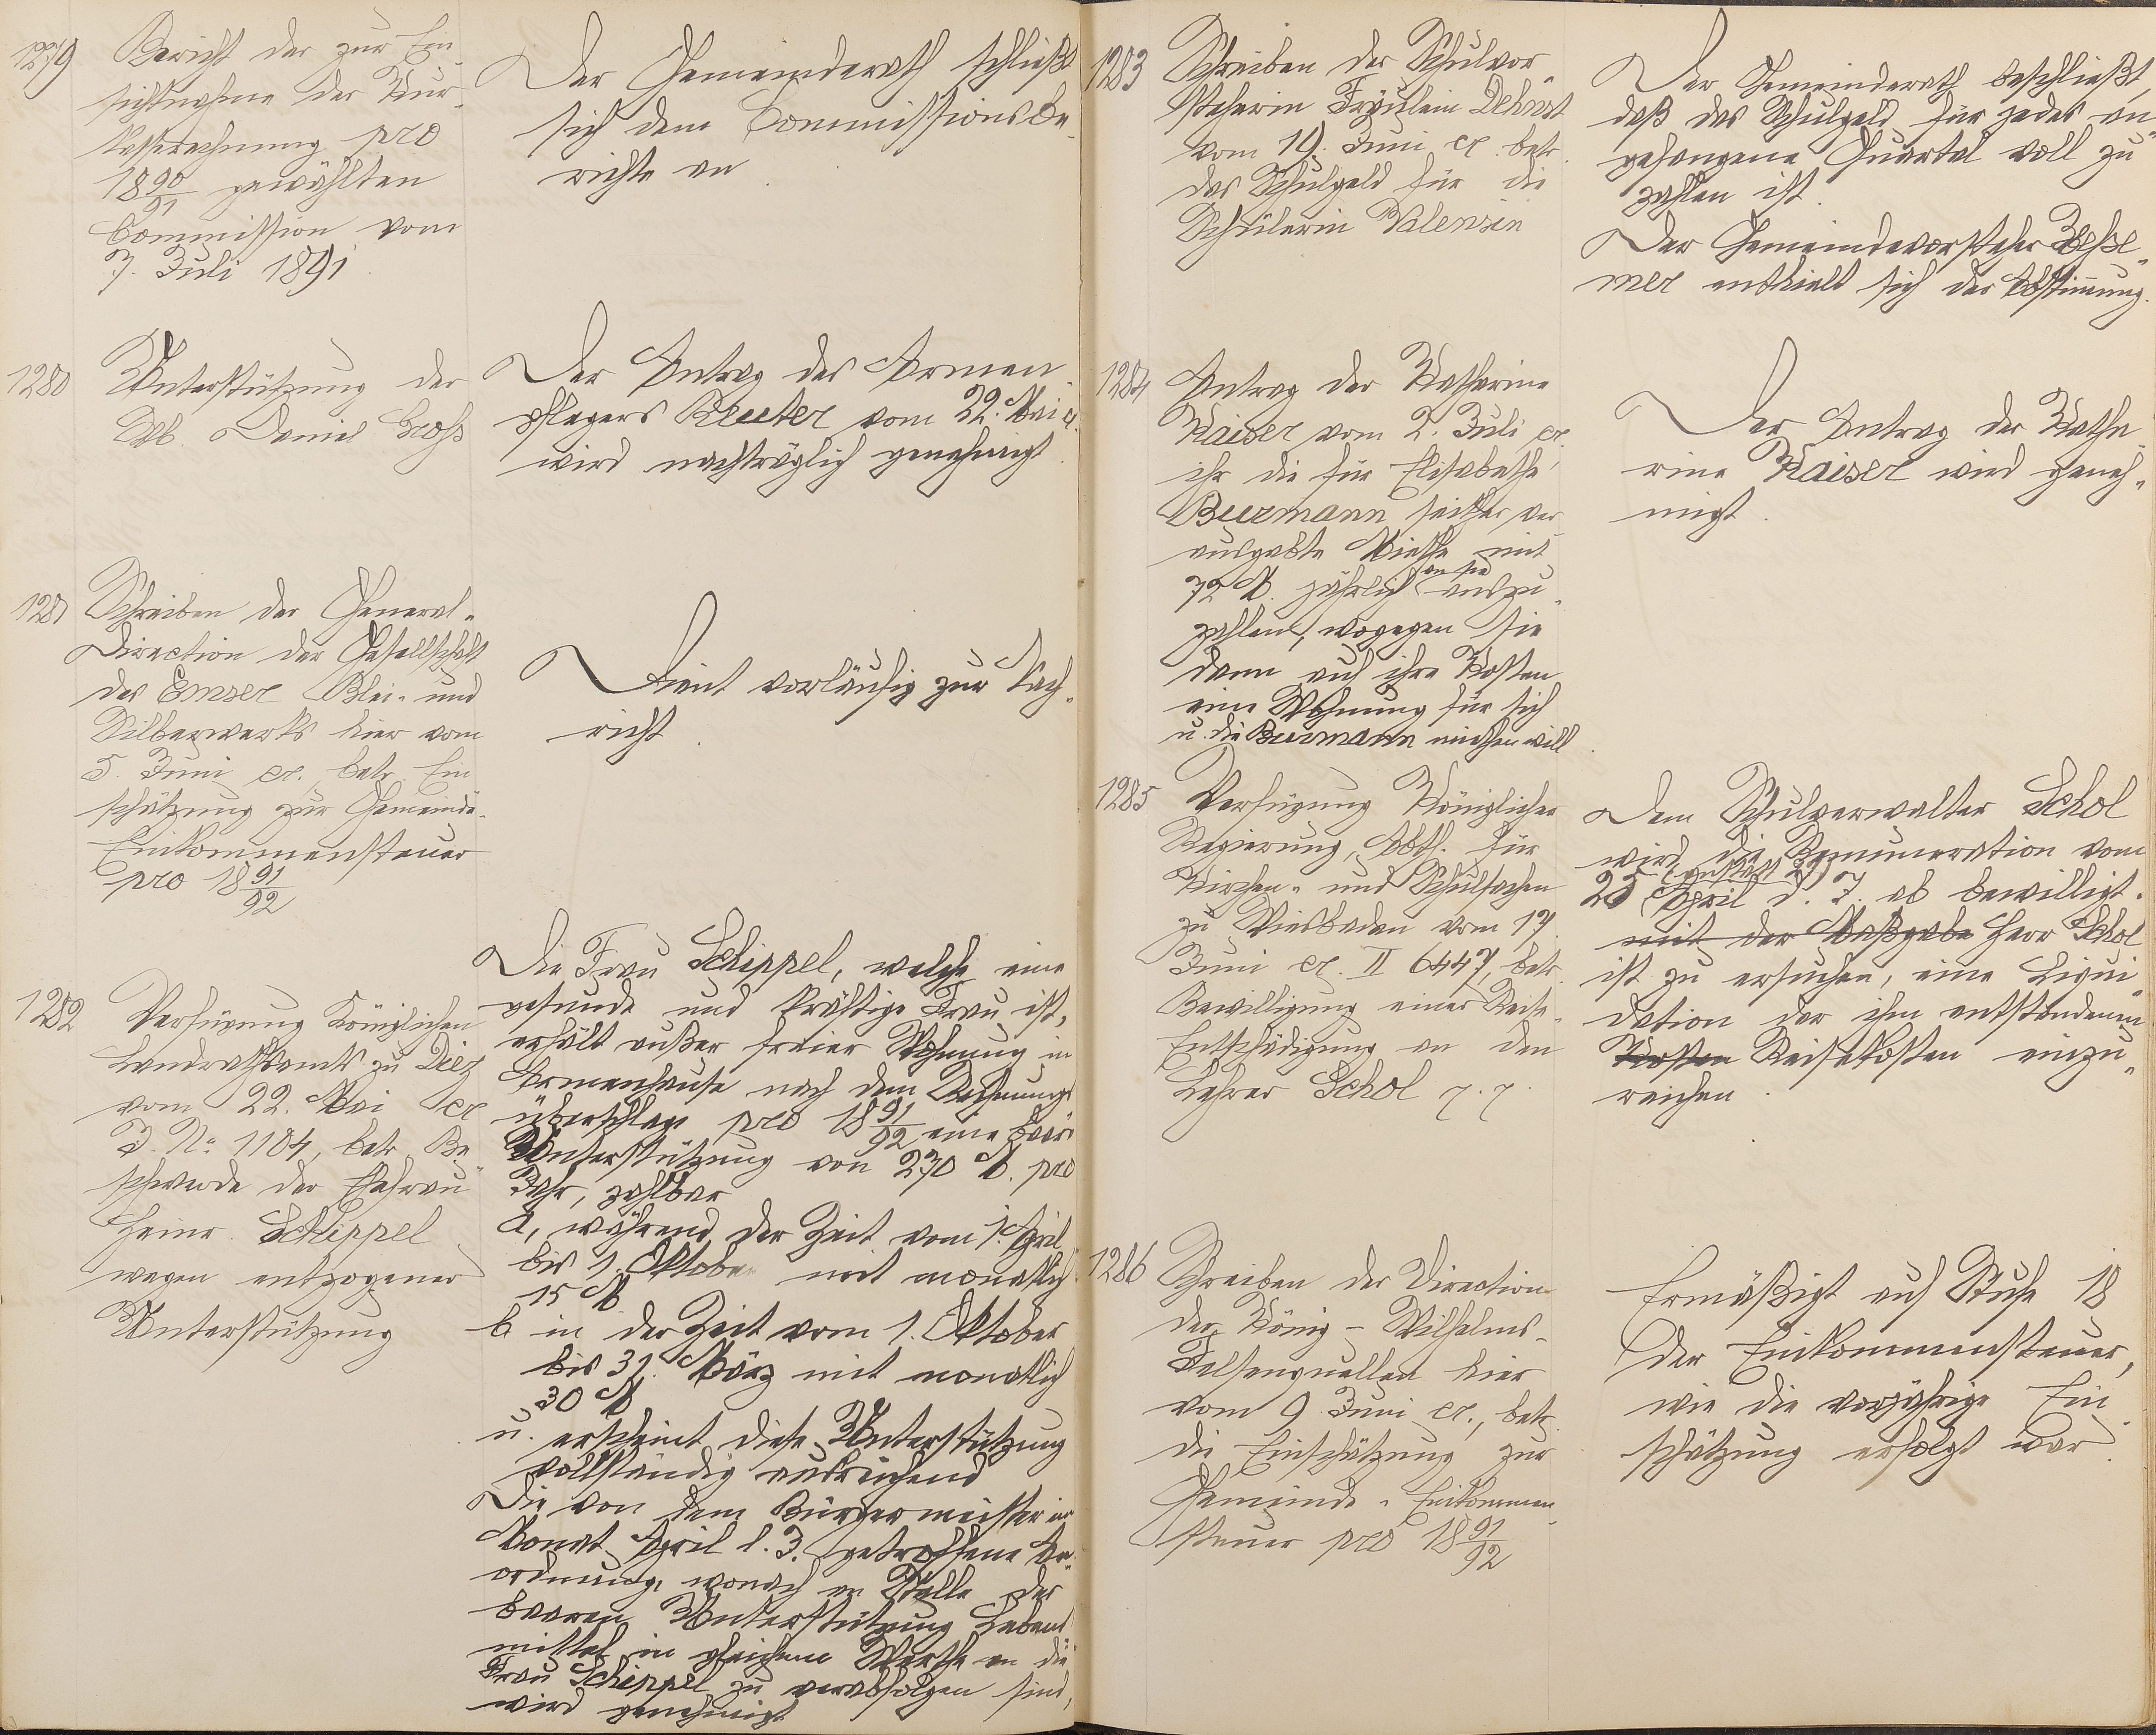 1279
Bericht der zur Ein-
sichtnahme der Kur-
kostrechnung pro
18 90/91 gewählten
Commission vom
7. Juli 1891
Der Gemeinderath schließt
sich dem Commissionsbe-
richte an
1280
Unterstützung der
Wb. Daniel Groß
Der Antrag des Armen
pflegers Reuter vom 22. Mai cr.
wird nachträglich genehmigt
1281
Schreiben der General-
Direction der Gesellschaft
des Emser Blei- und
Silberwerks hier vom
5. Juni cr. betr. Ein
schätzung zur Gemeinde-
Einkommensteuer
pro 18 91/92
Dient vorläufig zur Nach-
richt
1282
Verfügung Königlichen
Landrathsamts zu Diez
vom 22. Mai cr
J. No 1184, betr. Be-
schwerde der Ehefrau
Heinr. Schippel
wegen entzogener
Unterstützung
Die Frau Schippel, welche eine
gesunde und kräftige Frau ist,
erhält außer freier Wohnung im
Armenhause nach dem Rechnungs
überschlag pro 18 91/92 eine baar
Unterstützung von 270 M. pro
Jahr, zahlbar
a, während der Zeit vom 1. April
bis 1. Oktober mit monatlich
15 M
b in der Zeit vom 1. Oktober
bis 31. März mit monatlich
30 M
u. erscheint diese Unterstützung
vollständig ausreichend
Die von dem Bürgermeister im
Monat April l. J. getroffene An-
ordnung, wonach an Stelle der
baaren Unterstützung Lebens
mittel in gleichem Werthe an die
Frau Schippel zu verabfolgen sind,
wird genehmigt
1283
Schreiben der Schulvor-
steherin Fräulein
vom 19. Juni cr. betr.
das Schulgeld für die
Schülerin Valensin
Der Gemeinderath beschließt,
daß das Schulgeld für jedes an-
gefangene Quartal voll zu
zahlen ist.
Der Gemeindevorsteher
mer enthielt sich der Abstimmung.
1284
Antrag der Katharine
Kaiser vom 2. Juli cr.
ihr die für Elisabethe
Burmann seither ver
ausgabte Miethe mit
72 M. jährlich an sie auszu-
zahlen, wogegen sie
dann auf ihre Kosten
eine Wohnung für sich
u. die Burmann miethen will.
Der Antrag der Katha-
rine Kaiser wird geneh-
migt.
1285
Verfügung Königlicher
Regierung, Abth. für
Kirchen- und Schulsachen
zu Wiesbaden vom 17.
Juni cr. II 6447, betr.
Bewilligung einer Reise-
Entschädigung an den
Lehrer Schol
Dem Schulverwalter Schol
wird die Remuneration vom
25 April d. J. ab bewilligt.
mit der Maßgabe Herr Schol
ist zu ersuchen, eine Liqui-
dation der ihm entstandenen
Kosten Reisekosten einzu-
reichen.
1286
Schreiben der Direction
der König-Wilhelms-
Felsenquellen hier
vom 9. Juni cr., betr.
die Einschätzung zur
Gemeinde-Einkommen-
steuer pro 18 91/92
Ermäßigt auf Stufe 18
der Einkommensteuer,
wie die vorjährige Ein-
schätzung erfolgt war.